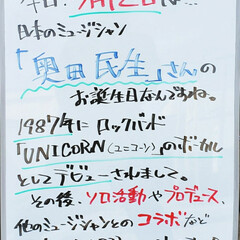 今日、5月12日は…
日本のミュージシャン
「奥田民生」さんの
お誕生日なんですよね。
1987年にロックバンド
「UNICORN(ユニコーン)」のボーカル
としてデビューされまして。
その後、ソロ活動やプロデュース、
他のミュージシャンとのコラボなど